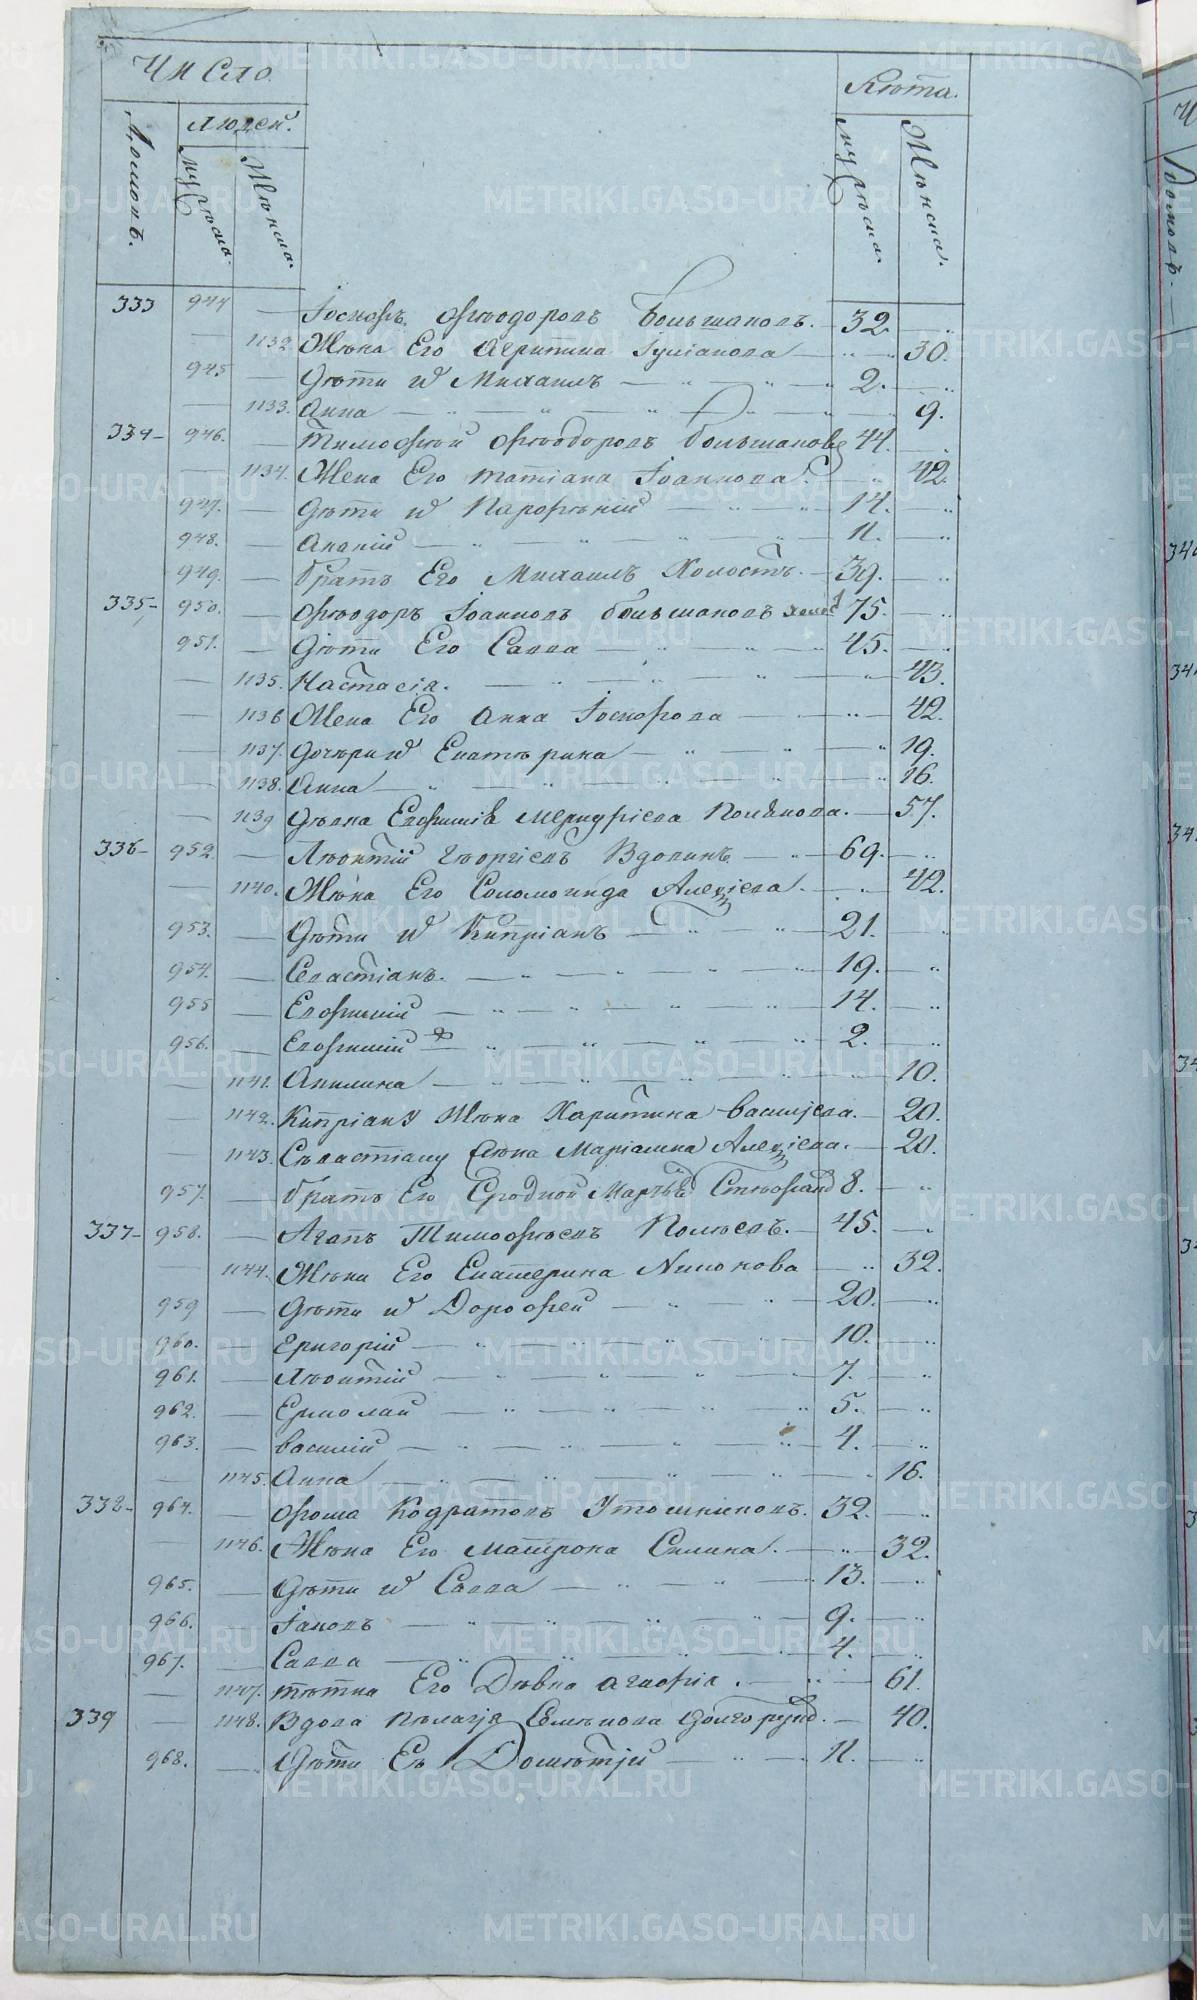 Число
Людей.
Лета.
Домовъ.
Мужеска.
Женска.
Мужеска.
Женска.
333 944 — Іосифъ Феодоровъ Большаковъ. — 32. — „
— 1132. Жена Его Агрипина — „ — 30.
945 — Дети и Михаилъ — „ — „ — 2. — „
— 1133. Анна — „ — „ — 9.
334 — 946. — Тимофей Феодоровъ Большаковъ 44. — „
— 1134. Жена Его Татіана Іоаннова. — 42.
947. — Дети и Парфеній — „ — 14. — „
948. — Ананій — „ — „ — 11. — „
949. — Братъ Его Михаилъ Холостъ. — 39. — „
335 — 950. — Феодоръ Іоанновъ Большаковъ холос 75. — „
951. — Дети Его Савва — „ — 45. — „
— 1135. Настасія. — „ — „ — 43.
— 1136 Жена Его Анна Іосифова — „ — 42.
— 1137. Дочери и Екатерина — „ — „ — 19.
— 1138. Анна — „ — „ — 16.
— 1139 Девка Евфимія Меркуріева Полякова. — 57.
336 — 952. — Леонтій Георгіевъ Вдовинъ — „ — 69. — „
— 1140. Жена Его Соломонида Алексіева. — „ — 42.
953. — Дети и Кипріанъ — „ — 21. — „
954. — Севастіанъ. — „ — „ — 19. — „
955 — Евфимій — „ — „ — 14. — „
956. — Евфимій — „ — „ — 2. — „
— 1141. Акилина — „ — „ — 10.
— 1142. Кипріану Жена Харитина Василіева. — 20.
— 1143. Севастіану Жена Маріамна Алексіева. — 20.
957. — Братъ Его Сродной 8. — „
337 — 958. — Агапъ Тимофеевъ Полѣевъ. — 45. — „
— 1144. Жена Его Екатерина — „ — 32.
959 — Дети и Дорофей — „ — 20. — „
960. — Григорій — „ — „ — 10. — „
961. — Леонтій — „ — „ — 7. — „
962. — Ермолай — „ — „ — 5. — „
963. — Василій — „ — „ — 4. — „
— 1145. Анна — „ — „ — 16.
338 — 964. — Фома Кодратовъ 32. — „
— 1146. Жена Его Матрона Силина. — „ — 32.
965. — Дети и Савва — „ — 13. — „
966. — Іаковъ — „ — „ — 9. — „
967. — Савва — „ — „ — 4. — „
— 1147. Тетка Его Девка Агафія. — „ — 61.
339 — 1148. Вдова Пелагія Семенова — 40.
968. — Дети Ея Дометій — „ — 11. — „
METRIKI.GASO-URAL.RU